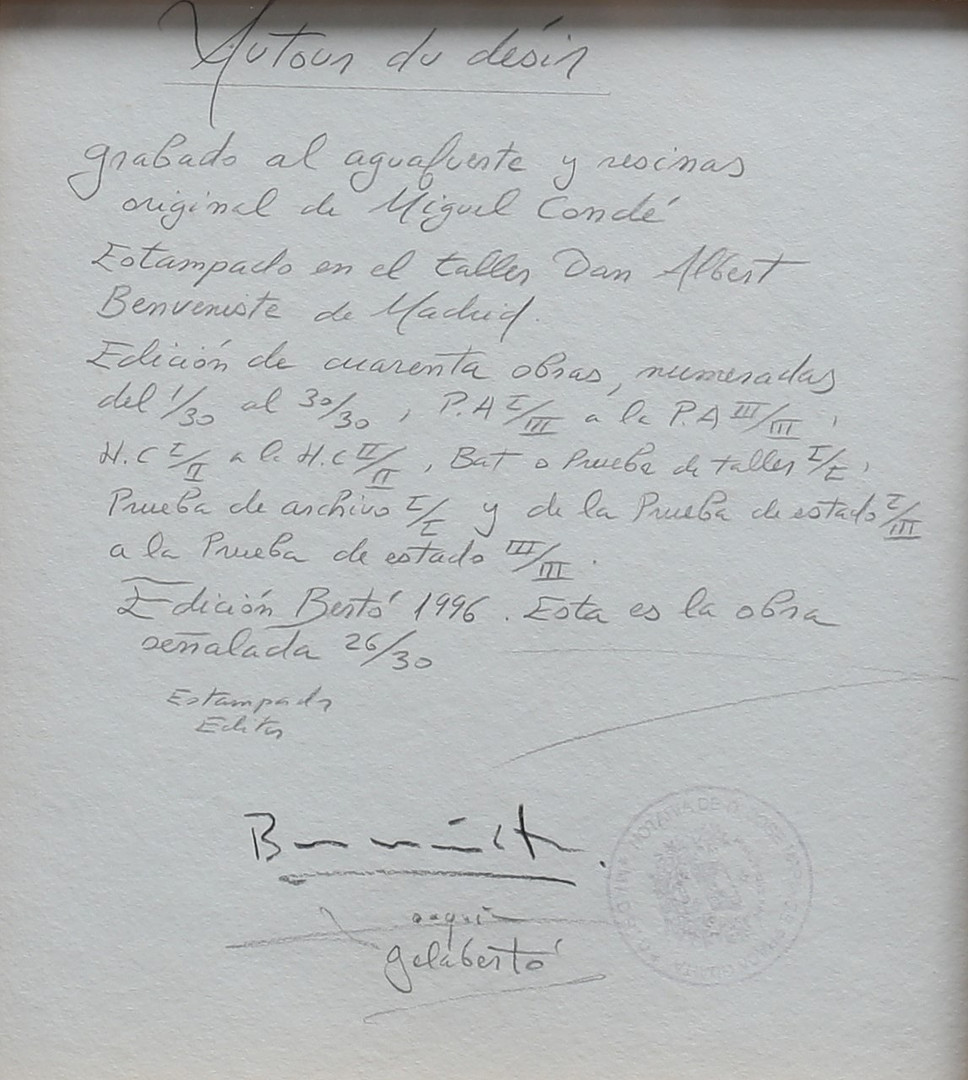 Autour du désir
grabado al aguafuerte y resinas
original de Miguel Condé
Estampado en el taller Dan Albert
Benveniste de Madrid.
Edición de cuarenta obras, numeradas
del 1/30 al 30/30, P.A I/III a la P.A III/III,
H.C I/II a la H.C II/II, Bat o Prueba de taller I/I,
Prueba de archivo I/I y de la Prueba de estado I/III
a la Prueba de estado III/III.
Edición Bertó 1996. Esta es la obra
señalada 26/30
Estampado
Editor
gelabertó
NOTARIA DE D. JOSE